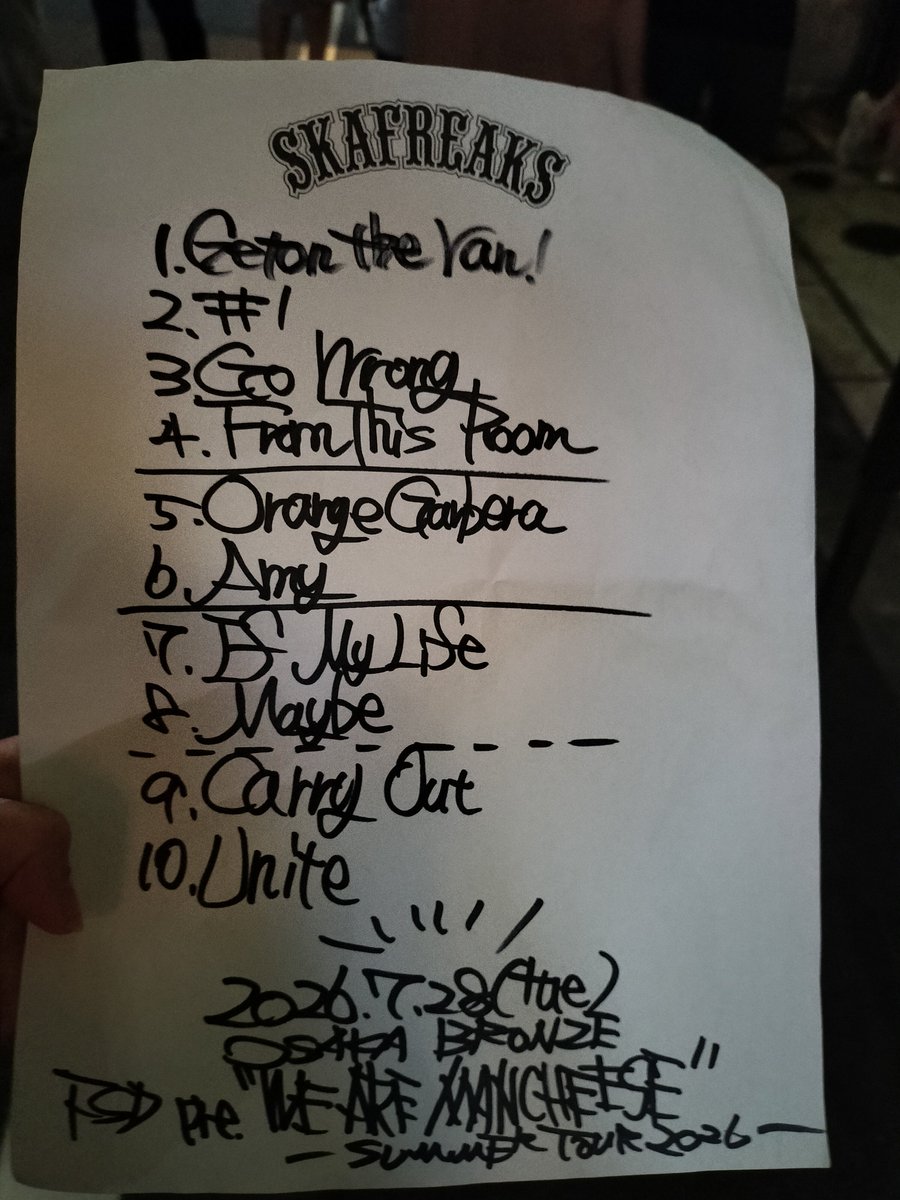 SKAFREAKS
1. Get on the Van!
2. #1
3 Go Wrong
4. From This Room
5. Orange Garbera
6. Amy
7. If My Life
8. Maybe
9. Carry Out
10. Unite
2026.7.28(tue)
OSAKA BRONZE
Pre. "WE ARE MANCHEESE"
- SUMMER TOUR 2026 -